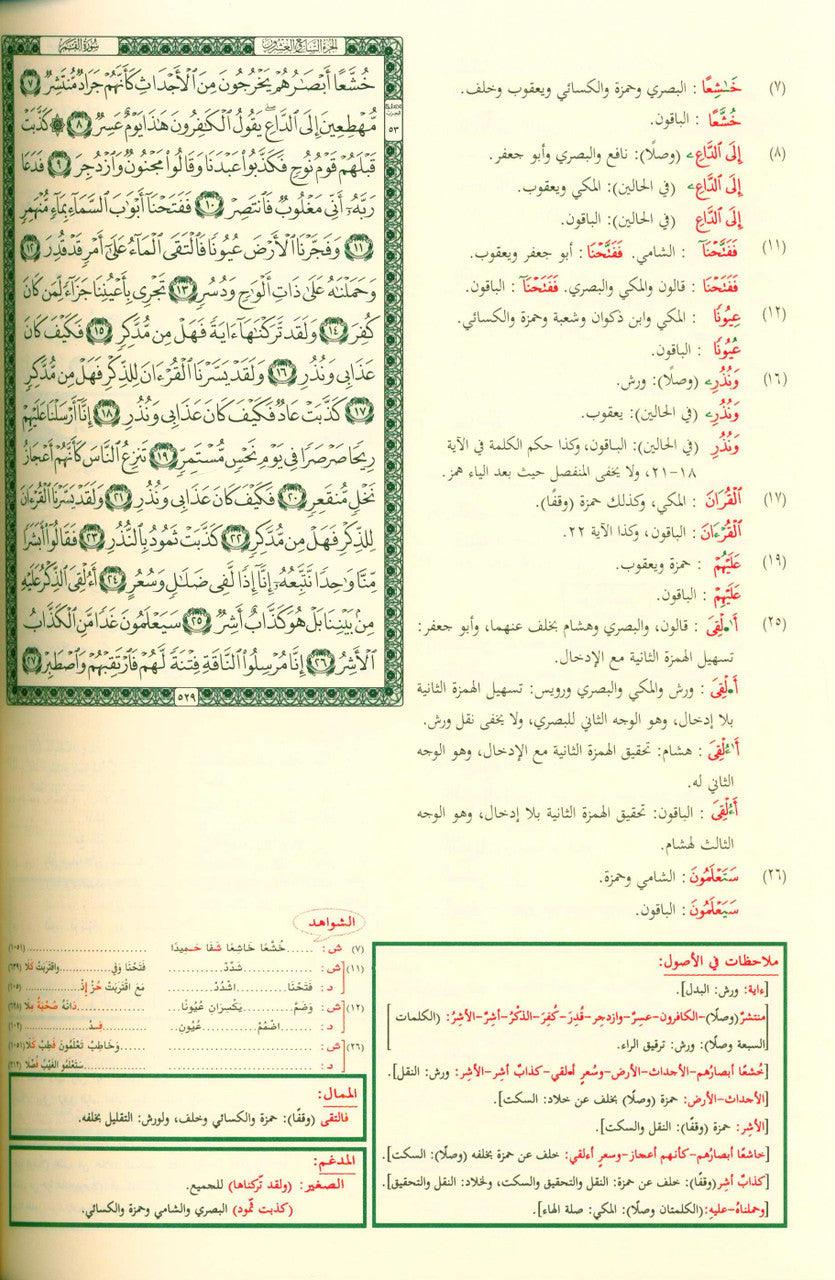 سُورَةُ القَمَرِ
الجزء السابع والعشرون
خُشَّعًا أَبْصَٰرُهُمْ يَخْرُجُونَ مِنَ ٱلْأَجْدَاثِ كَأَنَّهُمْ جَرَادٌ مُّنتَشِرٌ ٧
مُّهْطِعِينَ إِلَى ٱلدَّاعِ يَقُولُ ٱلْكَٰفِرُونَ هَٰذَا يَوْمٌ عَسِرٌ ٨ ۞ كَذَّبَتْ
قَبْلَهُمْ قَوْمُ نُوحٍ فَكَذَّبُوا۟ عَبْدَنَا وَقَالُوا۟ مَجْنُونٌ وَٱزْدُجِرَ ٩ فَدَعَا
رَبَّهُۥٓ أَنِّى مَغْلُوبٌ فَٱنتَصِرْ ١٠ فَفَتَحْنَآ أَبْوَٰبَ ٱلسَّمَآءِ بِمَآءٍ مُّنْهَمِرٍ
١١ وَفَجَّرْنَا ٱلْأَرْضَ عُيُونًا فَٱلْتَقَى ٱلْمَآءُ عَلَىٰٓ أَمْرٍ قَدْ قُدِرَ ١٢
وَحَمَلْنَٰهُ عَلَىٰ ذَاتِ أَلْوَٰحٍ وَدُسُرٍ ١٣ تَجْرِى بِأَعْيُنِنَا جَزَآءً لِّمَن كَانَ
كُفِرَ ١٤ وَلَقَد تَّرَكْنَٰهَآ ءَايَةً فَهَلْ مِن مُّدَّكِرٍ ١٥ فَكَيْفَ كَانَ
عَذَابِى وَنُذُرِ ١٦ وَلَقَدْ يَسَّرْنَا ٱلْقُرْءَانَ لِلذِّكْرِ فَهَلْ مِن مُّدَّكِرٍ
١٧ كَذَّبَتْ عَادٌ فَكَيْفَ كَانَ عَذَابِى وَنُذُرِ ١٨ إِنَّآ أَرْسَلْنَا عَلَيْهِمْ
رِيحًا صَرْصَرًا فِى يَوْمِ نَحْسٍ مُّسْتَمِرٍّ ١٩ تَنزِعُ ٱلنَّاسَ كَأَنَّهُمْ أَعْجَازُ
نَخْلٍ مُّنقَعِرٍ ٢٠ فَكَيْفَ كَانَ عَذَابِى وَنُذُرِ ٢١ وَلَقَدْ يَسَّرْنَا ٱلْقُرْءَانَ
لِلذِّكْرِ فَهَلْ مِن مُّدَّكِرٍ ٢٢ كَذَّبَتْ ثَمُودُ بِٱلنُّذُرِ ٢٣ فَقَالُوٓا۟ أَبَشَرًا
مِّنَّا وَٰحِدًا نَّتَّبِعُهُۥٓ إِنَّآ إِذًا لَّفِى ضَلَٰلٍ وَسُعُرٍ ٢٤ أَءُلْقِىَ ٱلذِّكْرُ عَلَيْهِ
مِنۢ بَيْنِنَا بَلْ هُوَ كَذَّابٌ أَشِرٌ ٢٥ سَيَعْلَمُونَ غَدًا مَّنِ ٱلْكَذَّابُ
ٱلْأَشِرُ ٢٦ إِنَّا مُرْسِلُوا۟ ٱلنَّاقَةِ فِتْنَةً لَّهُمْ فَٱرْتَقِبْهُمْ وَٱصْطَبِرْ ٢٧
٥٢٩
٥٣
(٧) خَٰشِعًا : البصري وحمزة والكسائي ويعقوب وخلف.
خُشَّعًا : الباقون.
(٨) إِلَى ٱلدَّاعِۦ (وصلًا): نافع والبصري وأبو جعفر.
إِلَى ٱلدَّاعِۦ (في الحالين): المكي ويعقوب.
إِلَى ٱلدَّاعِ (في الحالين): الباقون.
(١١) فَفَتَّحْنَآ : الشامي. فَفَتَّحْنَا : أبو جعفر ويعقوب.
فَفَتَحْنَا : قالون والمكي والبصري. فَفَتَحْنَآ : الباقون.
(١٢) عِيُونًا : المكي وابن ذكوان وشعبة وحمزة والكسائي.
عُيُونًا : الباقون.
(١٦) وَنُذُرِۦ (وصلًا): ورش.
وَنُذُرِۦ (في الحالين): يعقوب.
وَنُذُرِ (في الحالين): الباقون، وكذا حكم الكلمة في الآية
١٨-٢١، ولا يخفى المنفصل حيث بعد الياء همز.
(١٧) ٱلْقُرَانَ : المكي، وكذلك حمزة (وقفًا).
ٱلْقُرْءَانَ : الباقون، وكذا الآية ٢٢.
(١٩) عَلَيْهُمْ : حمزة ويعقوب.
عَلَيْهِمْ : الباقون.
(٢٥) أَا۬لْقِىَ : قالون، والبصري وهشام بخلف عنهما، وأبو جعفر:
تسهيل الهمزة الثانية مع الإدخال.
أَا۬لْقِىَ : ورش والمكي والبصري ورويس: تسهيل الهمزة الثانية
بلا إدخال، وهو الوجه الثاني للبصري، ولا يخفى نقل ورش.
أَاءُلْقِىَ : هشام: تحقيق الهمزة الثانية مع الإدخال، وهو الوجه
الثاني له.
أَءُلْقِىَ : الباقون: تحقيق الهمزة الثانية بلا إدخال، وهو الوجه
الثالث لهشام.
(٢٦) سَتَعْلَمُونَ : الشامي وحمزة.
سَيَعْلَمُونَ : الباقون.
الشواهد
(٧) ش: ......خُشَّعًا خَاشِعًا شَفَا حَمِيدًا ......(١٠٥١)
(١١) ش: ......شَدِّدْ...... فَتَحْنَا وَفِي......وَاقْتَرَبَتْ كَلَا (٦٣٩)
د: فَتَحْنَا......اشْدُدْ...... مَعَ اقْتَرَبَتْ حُزْ إِذْ......(١٠٥)
(١٢) ش: وَضَمَّ......يَكْسِرَانِ عُيُونًا... ......دَانَهُ صُحْبَةٌ مِلَا (٦٢٨)
د: ......اضْمُمْ......عُيُونِ.. ......فِدْ......(١٠٢)
(٢٦) ش: ......وَخَاطِبْ تَعْلَمُونَ فَطِبْ كَلَا (١٠٥١)
د: ......سَتَعْلَمُو الْغَيْبُ فُضِّلَا (٢١٢)
الممال:
فالتقى (وقفًا): حمزة والكسائي وخلف، ولورش: التقليل بخلفه.
المدغم:
الصغير: (ولقد تّركناها) للجميع.
(كذبت ثّمود) البصري والشامي وحمزة والكسائي.
ملاحظات في الأصول:
[ءاية: ورش: البدل].
[منتشرٌ(وصلًا)-الكافرون-عسرٌ-وازدجر-قُدِرَ-كُفِرَ-الذكرُ-أشرٌ-الأشرُ: (الكلمات
السبعة وصلًا): ورش: ترقيق الراء.]
[خُشعًا أبصارهم-الأجداث-الأرض-وسُعرٍ أءلقي-كذابٌ أشر-الأشر: ورش: النقل].
[الأجداث-الأرض: حمزة (وصلًا) بخلف عن خلاد: السكت].
[الأشِر: حمزة (وقفًا): النقل والسكت].
[خاشعًا أبصارهم-كأنهم أعجاز-وسعرٍ أءلقي: خلف عن حمزة بخلفه (وصلًا): السكت].
[كذابٌ أشر(وقفًا): خلف عن حمزة: النقل والتحقيق والسكت، ولخلاد: النقل والتحقيق].
[وحملناهُ-عليهِ:(الكلمتان وصلًا): المكي: صلة الهاء].